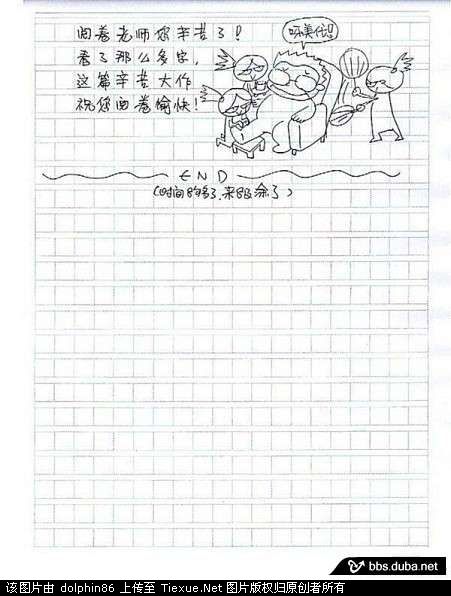 阅卷老师您辛苦了!
看了那么多字,
这篇辛苦大作
祝您阅卷愉快!
END
(时间够了,来涂了)
bbs.duba.net
该图片由 dolphin86 上传至 Tiexue.Net 图片版权归原创者所有